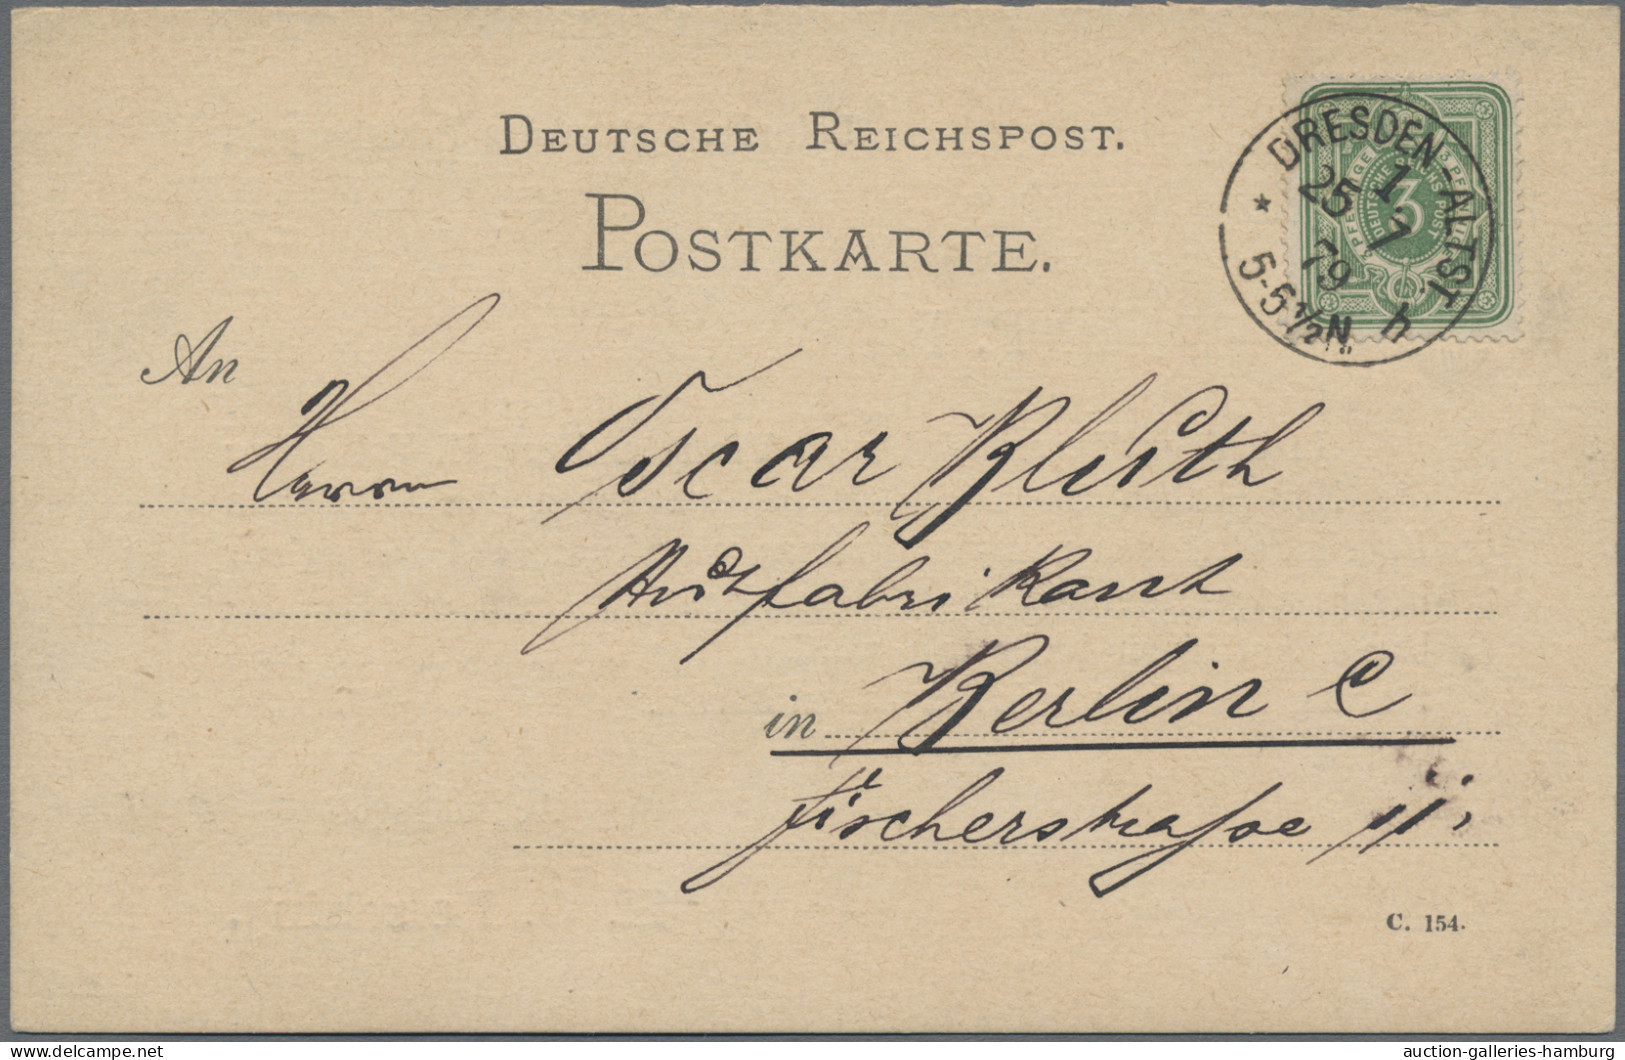 DEUTSCHE REICHSPOST.
POSTKARTE.
DRESDEN-ALTST. 1
25 1
79 h
* 5-5½N.
DEUTSCHE REICHS POST
3 PFENNIGE
3
An
Herrn Oscar Bluth
Hutfabrikant
in Berlin C
Fischerstraße 11.
C. 154.
delcampe.net
auction-galleries-hamburg